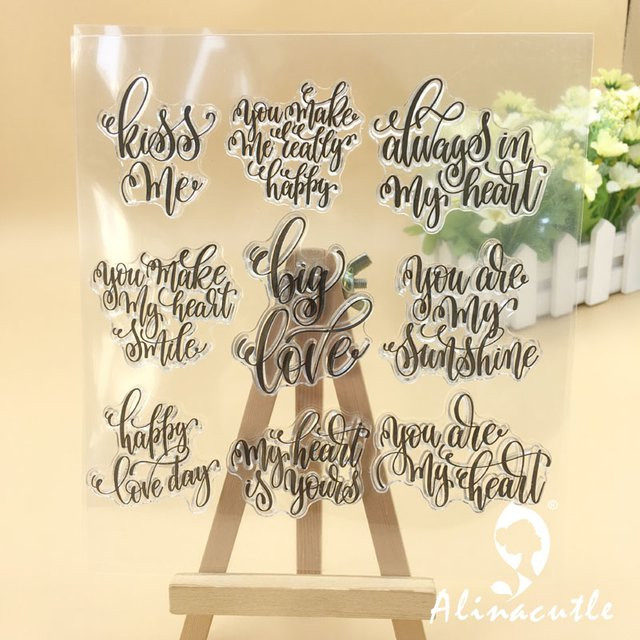 kiss
me
you make
me really
happy
always in
my heart
you make
my heart
smile
big
love
you are
my
sunshine
happy
love day
my heart
is yours
you are
my heart
®
Alinacutle